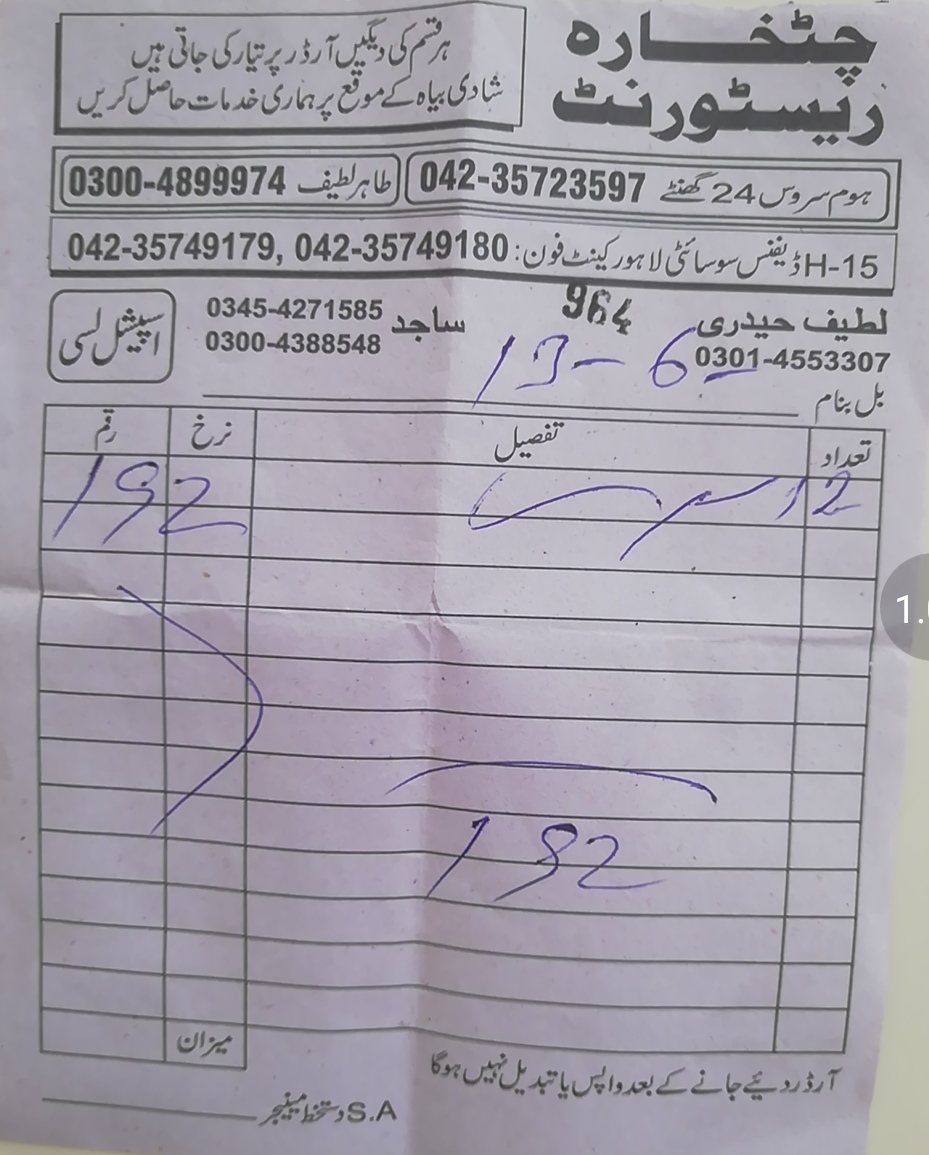 چٹخارہ
ریسٹورنٹ
ہر قسم کی دیگیں آرڈر پر تیار کی جاتی ہیں
شادی بیاہ کے موقع پر ہماری خدمات حاصل کریں
ہوم سروس 24 گھنٹے 042-35723597
طاہر لطیف 0300-4899974
H-15 ڈیفنس سوسائٹی لاہور کینٹ فون: 042-35749179, 042-35749180
964
لطیف حیدری
0301-4553307
ساجد 0345-4271585
0300-4388548
اسپیشل لسی
13-6-
بل بنام
تعداد تفصیل نرخ رقم
12 192
192
میزان
آرڈر دیئے جانے کے بعد واپس یا تبدیل نہیں ہوگا
S.A دستخط مینیجر
1.